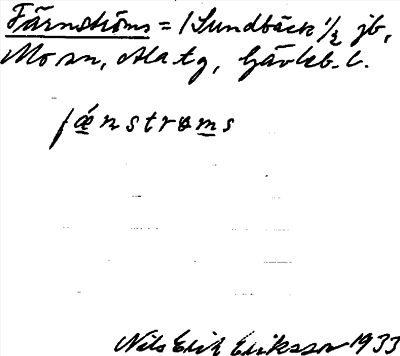 Färnströms = /Sundbäck 1/2 jb,
Mo sn, Ala tg, Gävleb. l.
fǽnstrɷms
Nils Erik Eriksson 1933